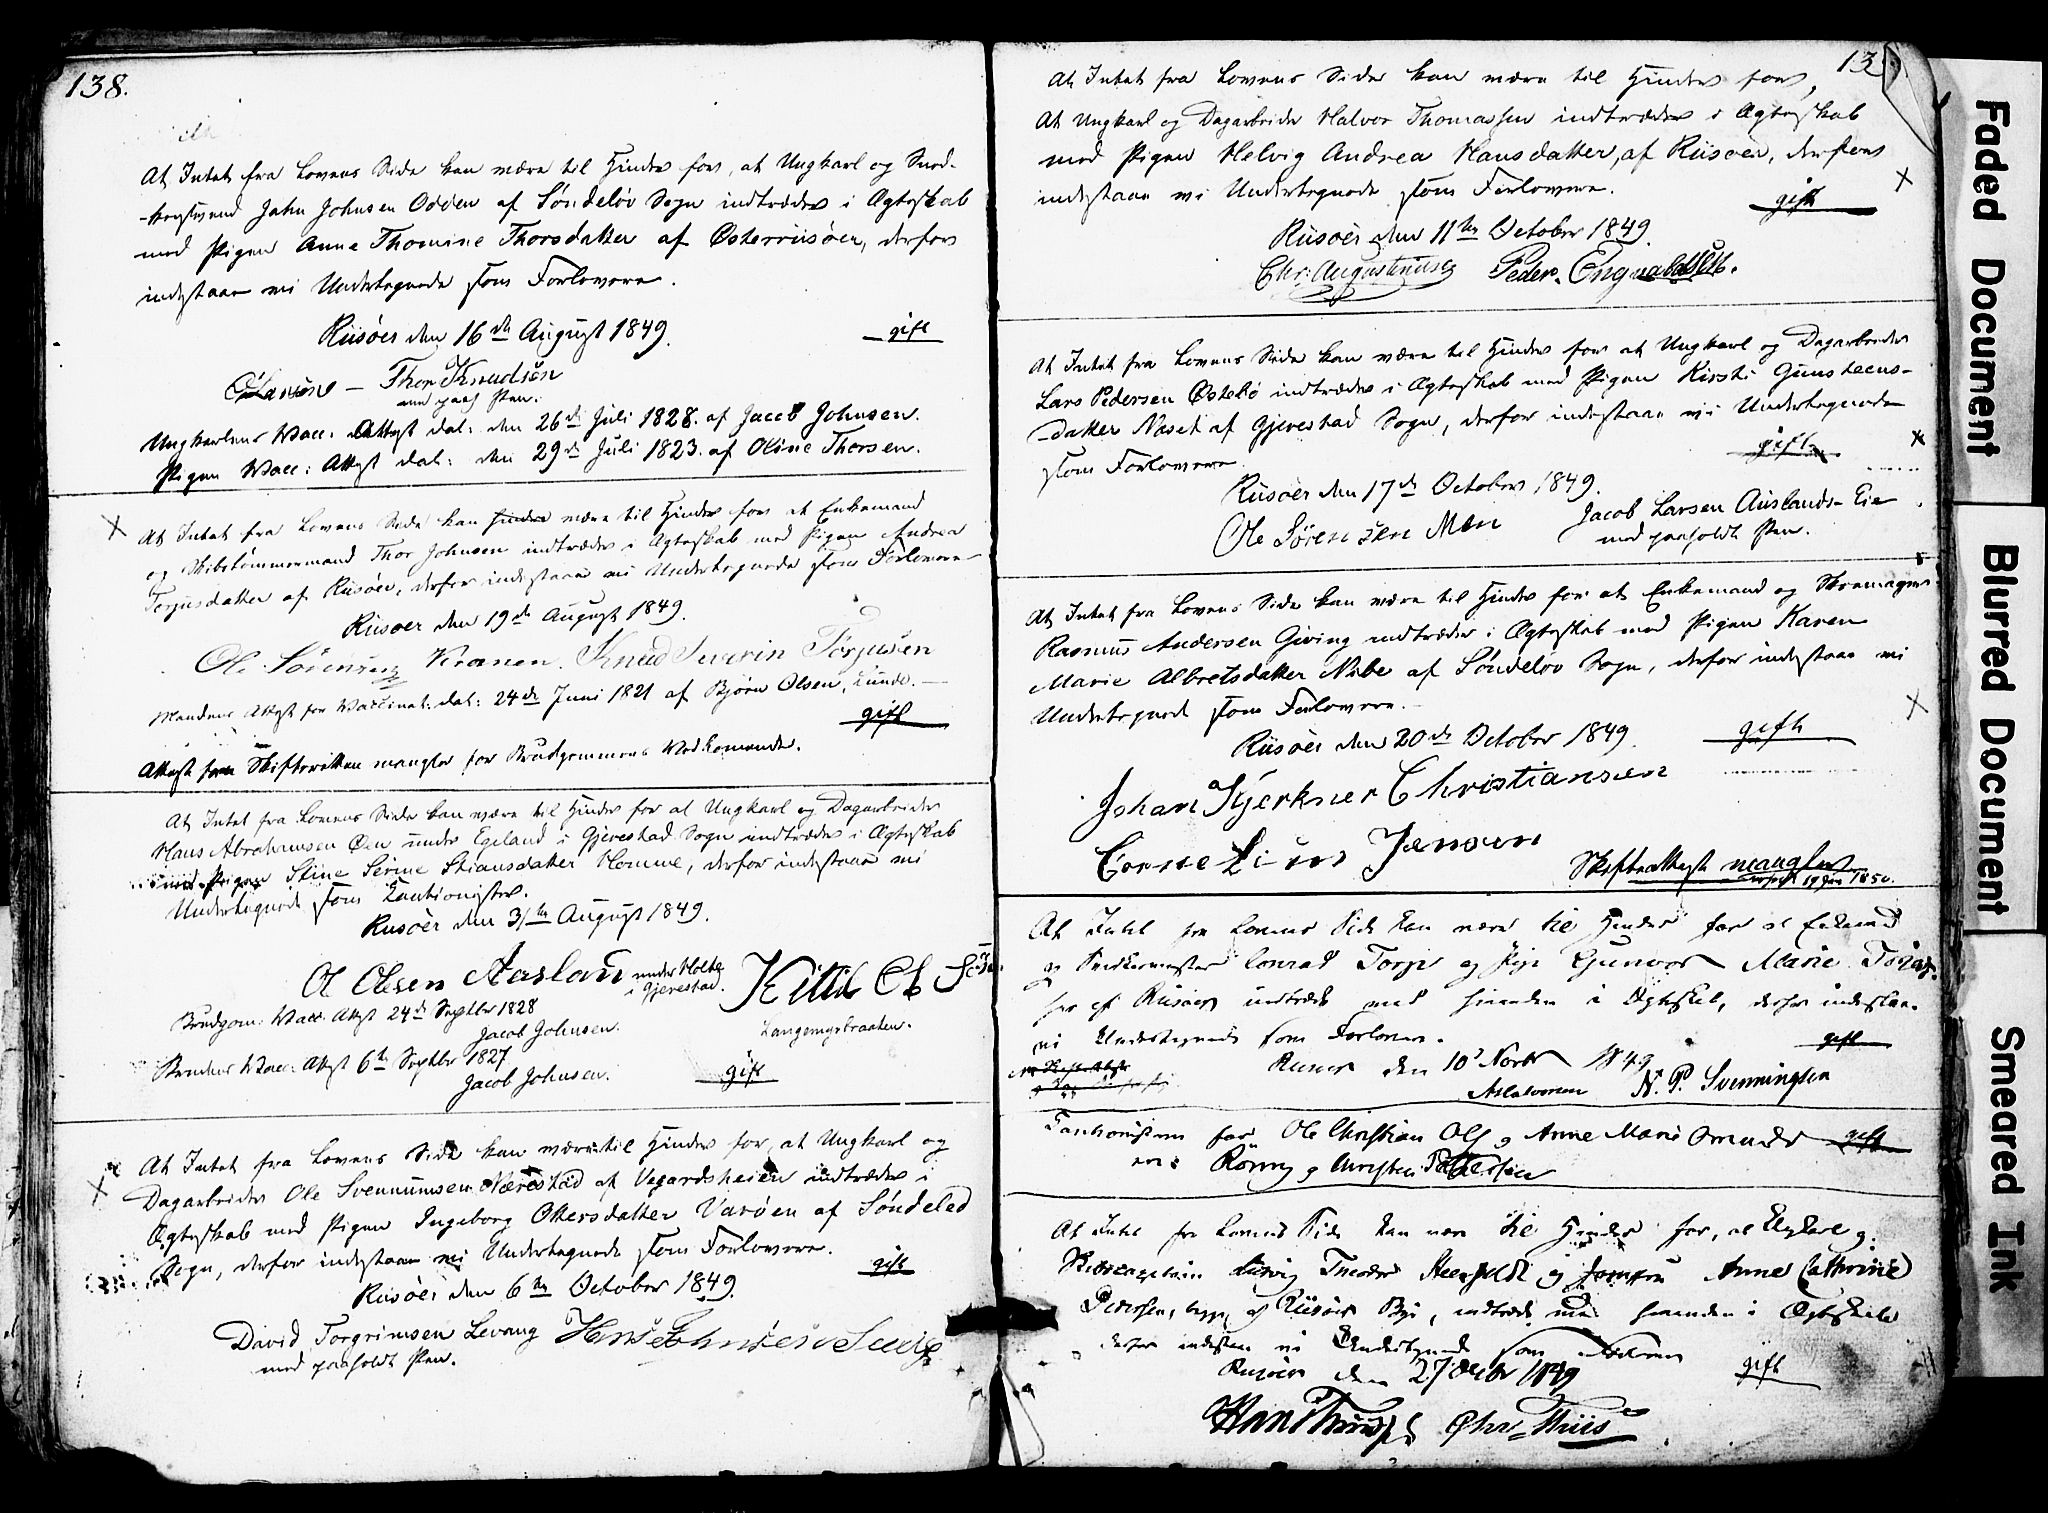 138.
At Intet fra Lovens Side kan være til Hinder for, at Ungkarl og Sned-
kersvend Jahn Johnsen Odden af Søndeløv Sogn indtræder i Ægteskab
med Pigen Anne Thomine Thorsdatter af Østerriisøer, derfor
indestaae vi Undertegnede som Forlovere.
Riisøer den 16de August 1849.
gift
Thor Knudsen
med paah Pen.
Ungkarlens Vacc: Attest dat: den 26de Juli 1828. af Jacob Johnsen.
Pigens Vacc: Attest dat: den 29de Juli 1823. af Oline Thorsen.
At Intet fra Lovens Side kan hindre være til Hinder for at Enkemand
og Skibstømmermand Thor Johnsen indtræder i Ægteskab med Pigen Andrea
Torjusdatter af Riisøer, derfor indestaae vi Undertegnede som Forlovere
Riisøer den 19de August 1849.
Ole Sørensen Kranen. Knud Severin Torjusen
Mandens Attest for Vaccinat: dat: 24de Juni 1821 af Bjørn Olsen, Lunde.
gift
Attest fra Skifteretten mangler for Brudgommens Vedkommende.
At Intet fra Lovens Side kan være til Hinder for at Ungkarl og Dagarbeider
Hans Abrahamsen Øen under Egeland i Gjerestad Sogn indtræder i Ægteskab
med Pigen Stine Serine Stiansdatter Homme, derfor indestaae vi
Undertegnede som Cautionister.
Riisøer den 31te August 1849.
Ol Olsen Aaslan under Holte
i Gjerestad.
Kittil
Langemyrbraaten.
Brudgom: Vacc: Attest 24de Septbr 1828
Jacob Johnsen.
Brudens Vacc: Attest 6te Septbr 1827
Jacob Johnsen.
gift
At Intet fra Lovens Side kan være til Hinder for, at Ungkarl og
Dagarbeider Ole Svennumsen Næresstad af Vegardsheien indtræder i
Ægteskab med Pigen Ingeborg Ottersdatter Varøen af Søndeled
Sogn, derfor indestaae vi Undertegnede som Forlovere.
gift
Riisøer den 6te October 1849.
David Torgrimsen Levang
med paaholdt Pen.
13
At Intet fra Lovens Side kan være til Hinder for,
At Ungkarl og Dagarbeider Halvor Thomassen indtræder i Ægteskab
med Pigen Helvig Andrea Hansdatter, af Riisøer, derfor
indestaae vi Undertegnede som Forlovere.
gift
Riisøer den 11te October 1849.
Chr: Augustinusen Peder.
At Intet fra Lovens Side kan være til Hinder for at Ungkarl og Dagarbeider
Lars Pedersen Østebø indtræder i Ægteskab med Pigen Kirsti Gunsteens-
datter Næset af Gjerestad Sogn, derfor indestaae vi Undertegnede
som Forlovere.
gift
Riisøer den 17de October 1849.
Ole Sørensen Mæn
Jacob Larsen Auslands-Eie
med paaholdt Pen.
At Intet fra Lovens Side kan være til Hinder for at Enkemand og Skomager
Rasmus Andersen Giving indtræder i Ægteskab med Pigen Karen
Marie Albretsdatter Nibe af Søndeløv Sogn, derfor indestaae vi
Undertegnede som Forlovere.
gift
Riisøer den 20de October 1849.
Johan Kjerkner Christiansen
Cornelius Jensen
Skifteattest mangler
1850.
At Intet fra Lovens Side kan være til Hinder for at Enkemand
og Snedkermester Conrad Torp og Pige Gunvor Marie
af Riisøer indtræde med hinanden i Ægteskab, derfor indestaae
vi Undertegnede som Forlovere.
gift
Riisøer den 10 Novbr 1849
N. P. Svenningsen
for Ole Christian Ols og Anne Marie
gift
ere: Rønning og
At Intet fra Lovens Side kan være til Hinder for, at Ungkarl og
Ludvig Theodor og Jomfru Anne Cathrine
Pedersen, begge af Riisøer By, indtræde med hinanden i Ægteskab
derfor indestaae vi Undertegnede som Forlovere
gift
Riisøer den 27 Octbr 1849
Faded Document
Blurred Document
Smeared Ink